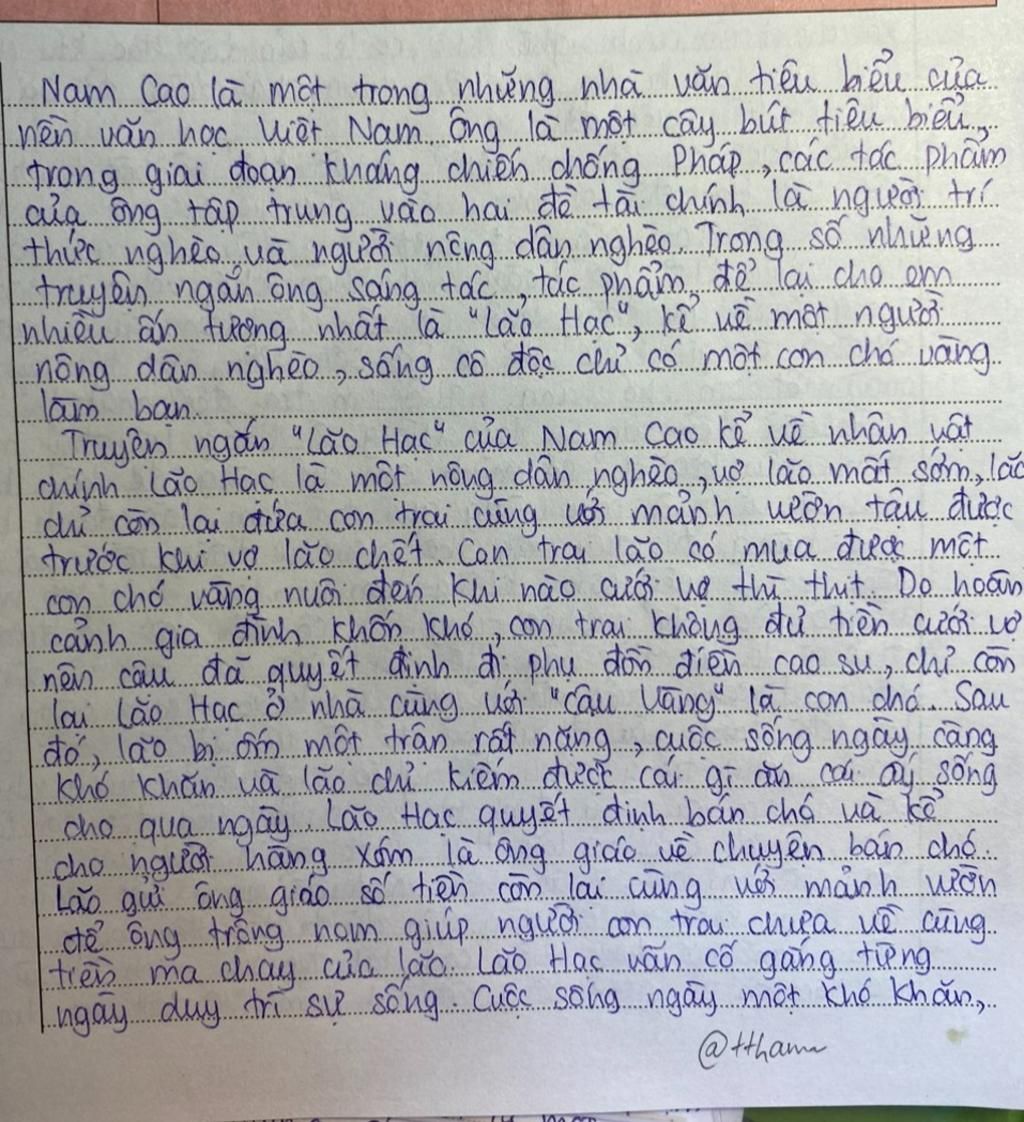 Nam Cao là một trong những nhà văn tiêu biểu của
nền văn học Việt Nam. Ông là một cây bút tiêu biểu,
trong giai đoạn kháng chiến chống Pháp, các tác phẩm
của ông tập trung vào hai đề tài chính là người trí
thức nghèo và người nông dân nghèo. Trong số những
truyện ngắn ông sáng tác, tác phẩm để lại cho em
nhiều ấn tượng nhất là "Lão Hạc", kể về một người
nông dân nghèo, sống cô độc chỉ có một con chó vàng
làm bạn.
Truyện ngắn "Lão Hạc" của Nam Cao kể về nhân vật
chính Lão Hạc là một nông dân nghèo, vợ lão mất sớm, lão
chỉ còn lại đứa con trai cùng với mảnh vườn tậu được
trước khi vợ lão chết. Con trai lão có mua được một
con chó vàng nuôi đến khi nào cưới vợ thì thịt. Do hoàn
cảnh gia đình khốn khó, con trai không đủ tiền cưới vợ
nên cậu đã quyết định đi phu đồn điền cao su, chỉ còn
lại Lão Hạc ở nhà cùng với "Cậu Vàng" là con chó. Sau
đó, lão bị ốm một trận rất nặng, cuộc sống ngày càng
khó khăn và lão chỉ kiếm được cái gì ăn cái ấy sống
cho qua ngày. Lão Hạc quyết định bán chó và kể
cho người hàng xóm là ông giáo về chuyện bán chó.
Lão gửi ông giáo số tiền còn lại cùng với mảnh vườn
để ông trông nom giúp người con trai chưa về cùng
tiền ma chay của lão. Lão Hạc vẫn cố gắng từng
ngày duy trì sự sống. Cuộc sống ngày một khó khăn,